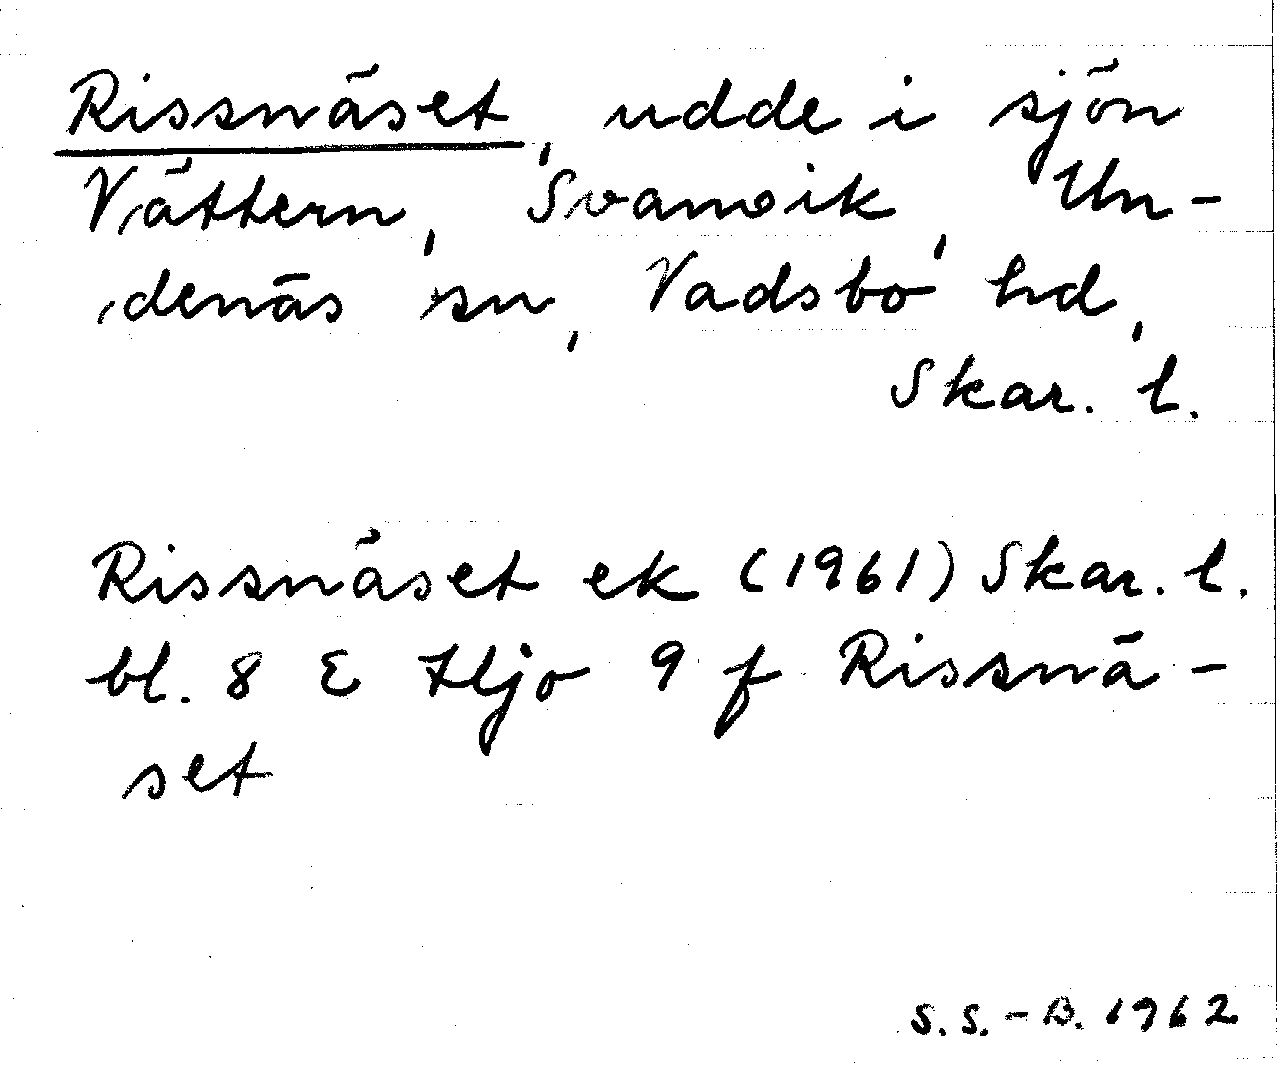 Rissnäset, udde i sjön
Vättern, Svanvik, Un-
denäs sn, Vadsbo hd,
Skar. l.
Rissnäset ek (1961) Skar. l.
bl. 8 E Hjo 9 f Rissnä-
set
S.S.-B. 1962